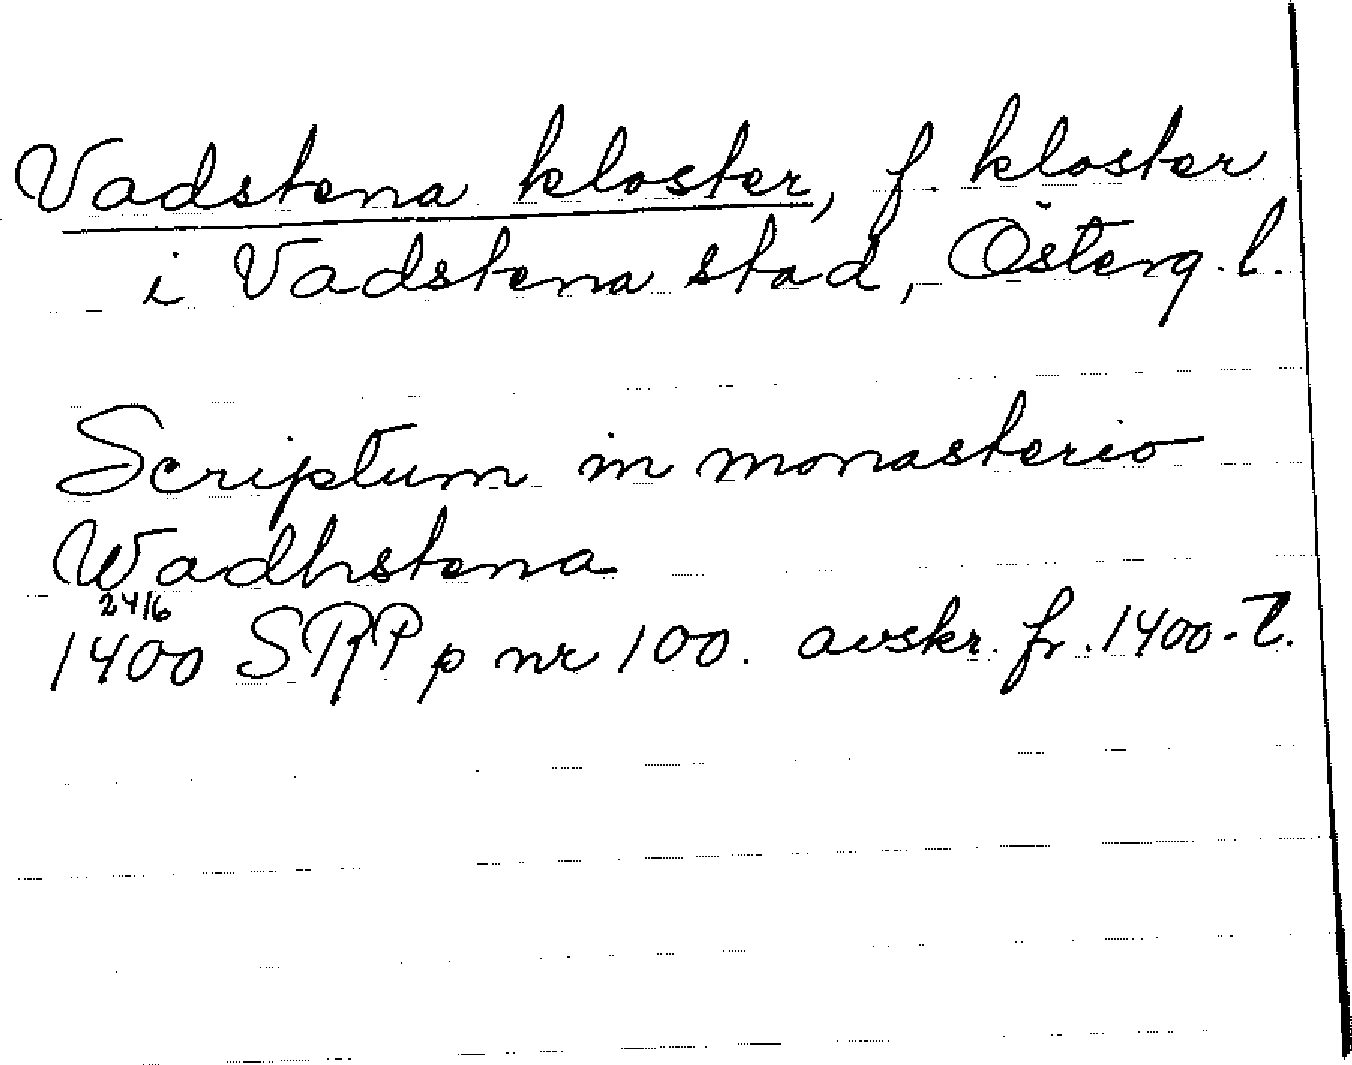 Vadstena kloster, f. kloster
i Vadstena stad, Österg. l.
Scriptum in monasterio
Wadhstena
24/6
1400 SRPp nr 100. avskr. fr. 1400-t.